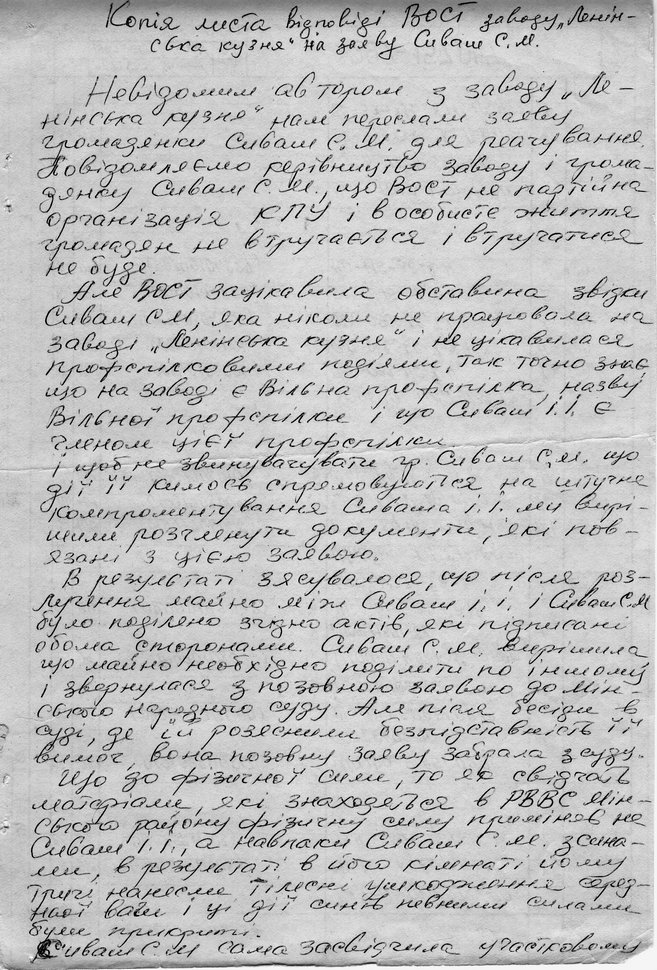 Копія листа відповіді ВОСТ заводу „Ленін-
ська кузня" на заяву Сиваш С.М.
Невідомим автором з заводу „Ле-
нінська кузня" нам переслали заяву
громадянки Сиваш С.М. для реагування.
Повідомляємо керівництво заводу і грома-
дянку Сиваш С.М., що ВОСТ не партійна
організація КПУ і в особисте життя
громадян не втручається і втручатися
не буде.
Але ВОСТ зацікавила обставина звідки
Сиваш С.М, яка ніколи не працювала на
заводі „Ленінська кузня" і не цікавилася
профспілковими подіями, так точно знає,
що на заводі є Вільна профспілка, назву
Вільної профспілки і що Сиваш І.І. є
членом цієї профспілки.
І щоб не звинувачувати гр. Сиваш С.М. що
дії її кимось спрямовуються на штучне
компроментування Сиваша І.І. ми вирі-
шили розглянути документи, які пов-
язані з цією заявою.
В результаті зясувалося, що після роз-
лучення майно між Сиваш І.І. і Сиваш С.М
було поділено згідно актів, які підписані
обома сторонами. Сиваш С.М. вирішила
що майно необхідно поділити по іншому
і звернулася з позовною заявою до Мін-
ського народного суду. Але після бесіди в
суді, де їй розяснили безпідставність її
вимог, вона позовну заяву забрала з суду.
Що до фізичної сили, то як свідчать
матеріали, які знаходяться в РВВС Мін-
ського району фізичну силу приміняв не
Сиваш І.І., а навпаки Сиваш С.М. з сина-
ми, в результаті в його кімнаті йому
тричі нанесли тілесні ушкодження серед-
ньої ваги і ці дії синів певними силами
були прикриті.
Сиваш С.М сама засвідчила участковому